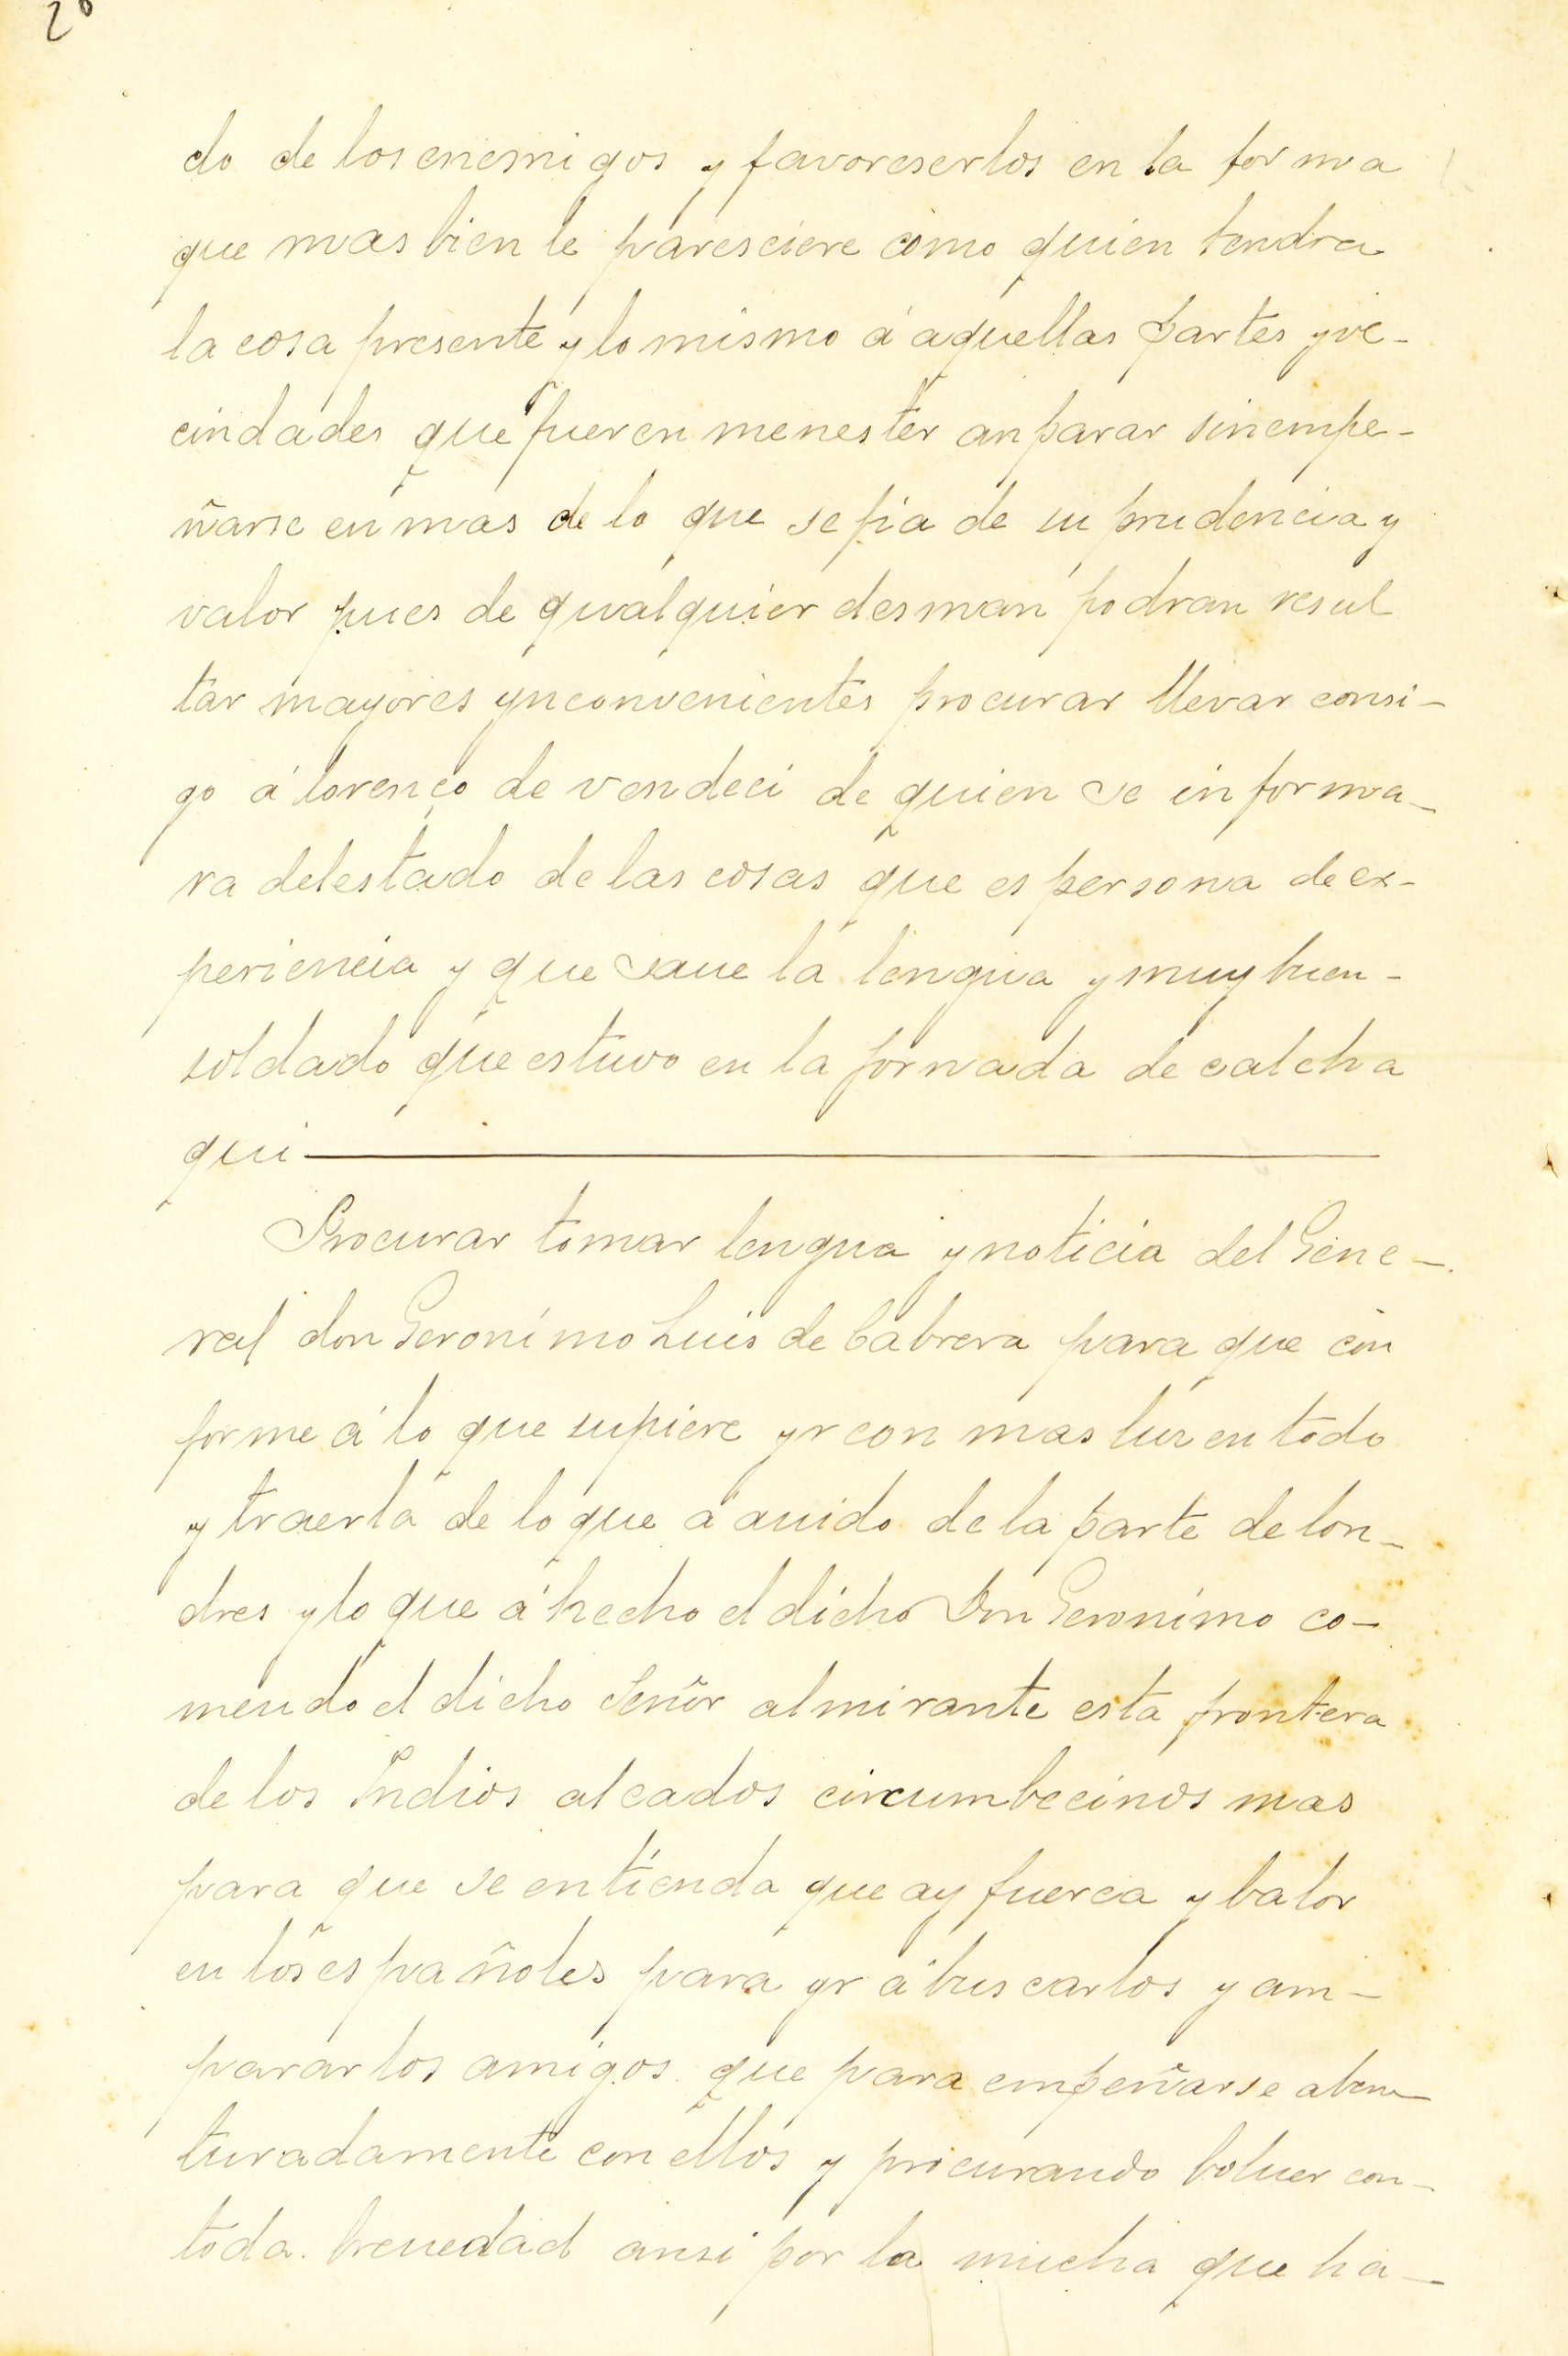 20
do de los enemigos y favoreserlos en la forma
que mas bien le paresciere como quien tendra
la cosa presente y lo mismo á aquellas partes y ve-
cindades que fueren menester anparar sin empe-
ñarse en mas de lo que se fia de su prudencia y
valor pues de qualquier desman podran resul
tar mayores ynconvenientes procurar llevar consi-
go á lorenço de vendeci de quien se informa-
ra del estado de las cosas que es persona de ex-
periencia y que saue la lengua y muy buen-
soldado que estuvo en la jornada de calcha
qui
Procurar tomar lengua y noticia del Gene-
ral don Geronimo Luis de Cabrera para que con
forme á lo que supiere yr con mas luz en todo
y traerla de lo que á auido de la parte de lon-
dres y lo que á hecho el dicho Don Geronimo co-
mendo el dicho Señor almirante esta frontera
de los Indios alcados circumbecinos mas
para que se entienda que ay fuerca y balor
en los españoles para yr á buscarlos y am-
parar los amigos que para empeñarse aben-
turadamente con ellos y procurando boluer con-
toda breuedad ansi por la mucha que ha-